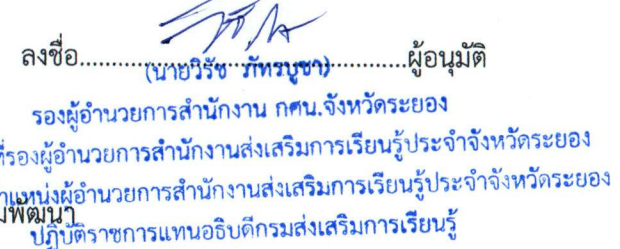 ลงชื่อ..............................................ผู้อนุมัติ
(นายวิรัช ภัทรบูชา)
รองผู้อำนวยการสำนักงาน กศน.จังหวัดระยอง
ที่รองผู้อำนวยการสำนักงานส่งเสริมการเรียนรู้ประจำจังหวัดระยอง
ตำแหน่งผู้อำนวยการสำนักงานส่งเสริมการเรียนรู้ประจำจังหวัดระยอง
มพัฒนา
ปฏิบัติราชการแทนอธิบดีกรมส่งเสริมการเรียนรู้